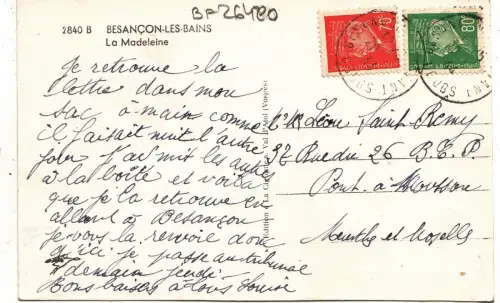 BF26480
2840 B BESANÇON-LES-BAINS
La Madeleine
70
80
Je retrouve la
lettre dans mon
sac à main comme
il faisait nuit l'autre
jour j'ai mit les autres
à la boîte et voilà
que je la retrouve en
allant à Besançon
je vous la renvoie donc
d'ici je passe au tribunal
demain jeudi
Bons baisers à tous Louise
Léon Saint Remy
37 Rue du 26 B.C.P.
Pont-à-Mousson
Meurthe et Moselle
(Vosges)